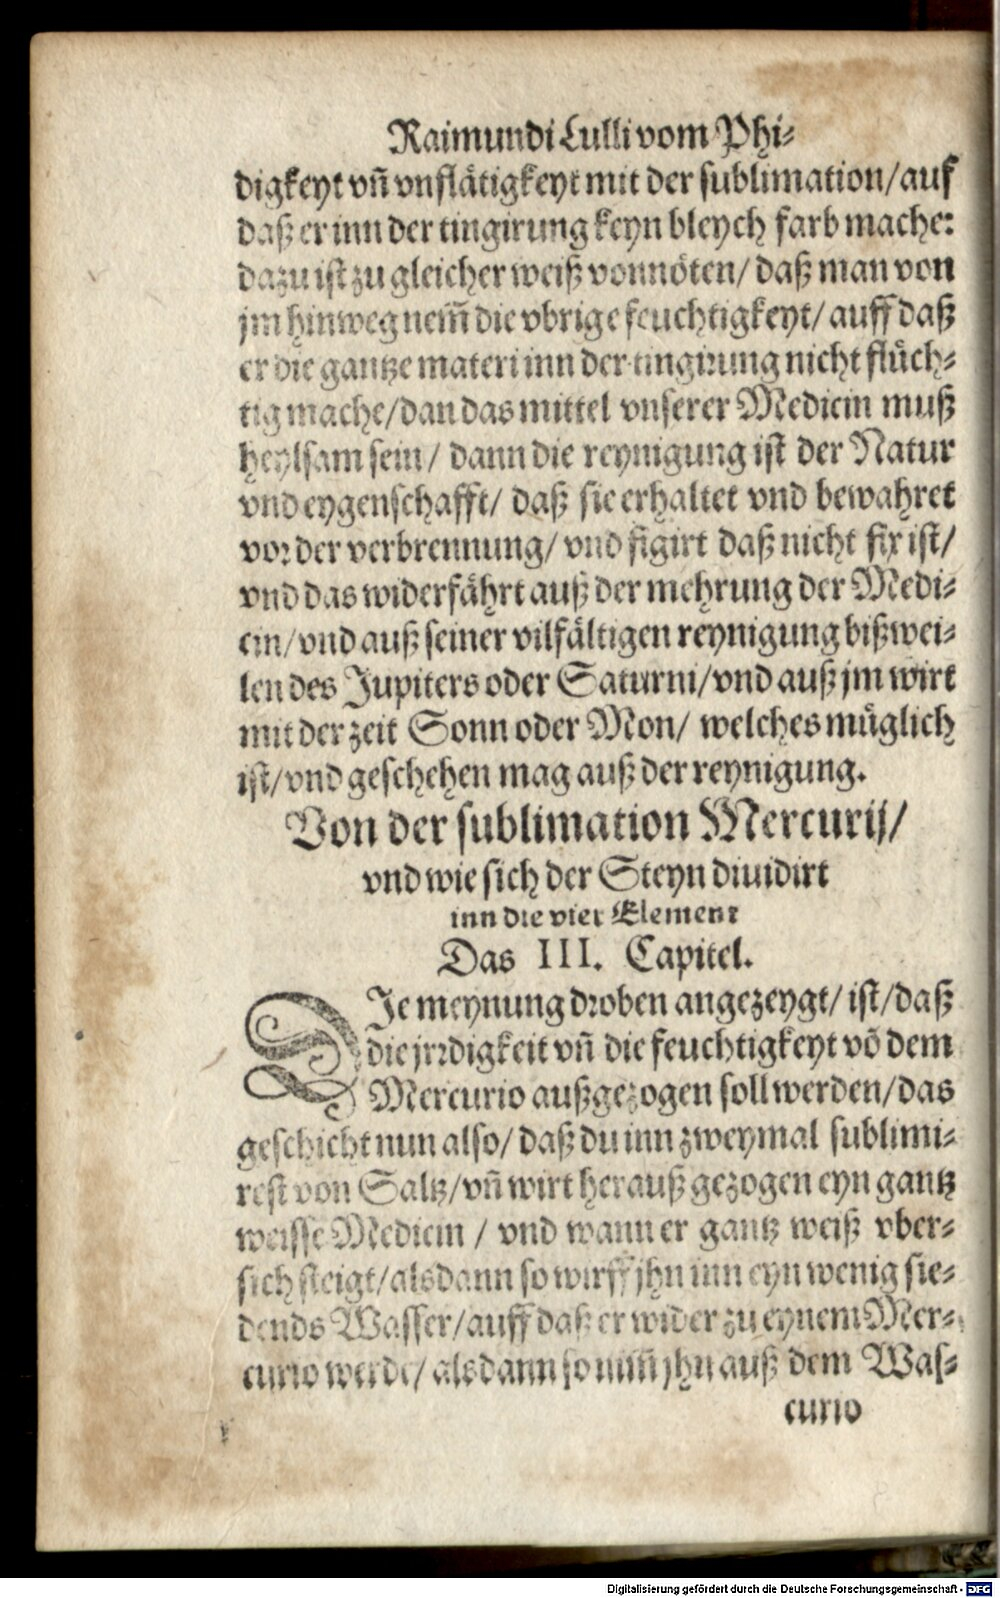 Raimundi Lulli vom Phi⸗
digkeyt vñ vnflätigkeyt mit der sublimation/auf
daß er inn der tingirung keyn bleych farb mache:
dazu ist zu gleicher weiß vonnöten/ daß man von
jm hinweg nem̃ die vbrige feuchtigkeyt/ auff daß
er die gantze materi inn der tingirung nicht flüch⸗
tig mache/dan das mittel vnserer Medicin muß
heylsam sein/ dann die reynigung ist der Natur
vnd eygenschafft/ daß sie erhaltet vnd bewahret
vor der verbrennung/ vnd figirt daß nicht fix ist/
vnd das widerfährt auß der mehrung der Medi⸗
cin/vnd auß seiner vilfältigen reynigung bißwei⸗
len des Jupiters oder Saturni/vnd auß jm wirt
mit der zeit Sonn oder Mon/ welches müglich
ist/vnd geschehen mag auß der reynigung.
Von der sublimation Mercurij/
vnd wie sich der Steyn diuidirt
inn die vier Element
Das III. Capitel.
DJe meynung droben angezeygt/ ist/daß
die jrrdigkeit vñ die feuchtigkeyt võ dem
Mercurio außgezogen soll werden/das
geschicht nun also/ daß du inn zweymal sublimi⸗
rest von Saltz/vñ wirt herauß gezogen eyn gantz
weisse Medicin / vnd wann er gantz weiß vber⸗
sich steigt/alsdann so wirff jhn inn eyn wenig sie⸗
dends Wasser/auff daß er wider zu eynem Mer⸗
curio werde/ alsdann so nim̃ jhn auß dem Was⸗
curio
Digitalisierung gefördert durch die Deutsche Forschungsgemeinschaft - DFG